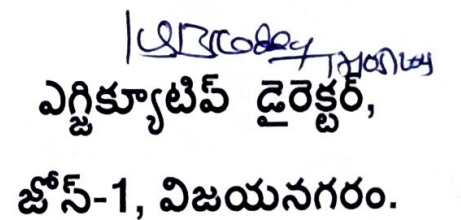 ఎగ్జిక్యూటివ్ డైరెక్టర్,
జోన్-1, విజయనగరం.